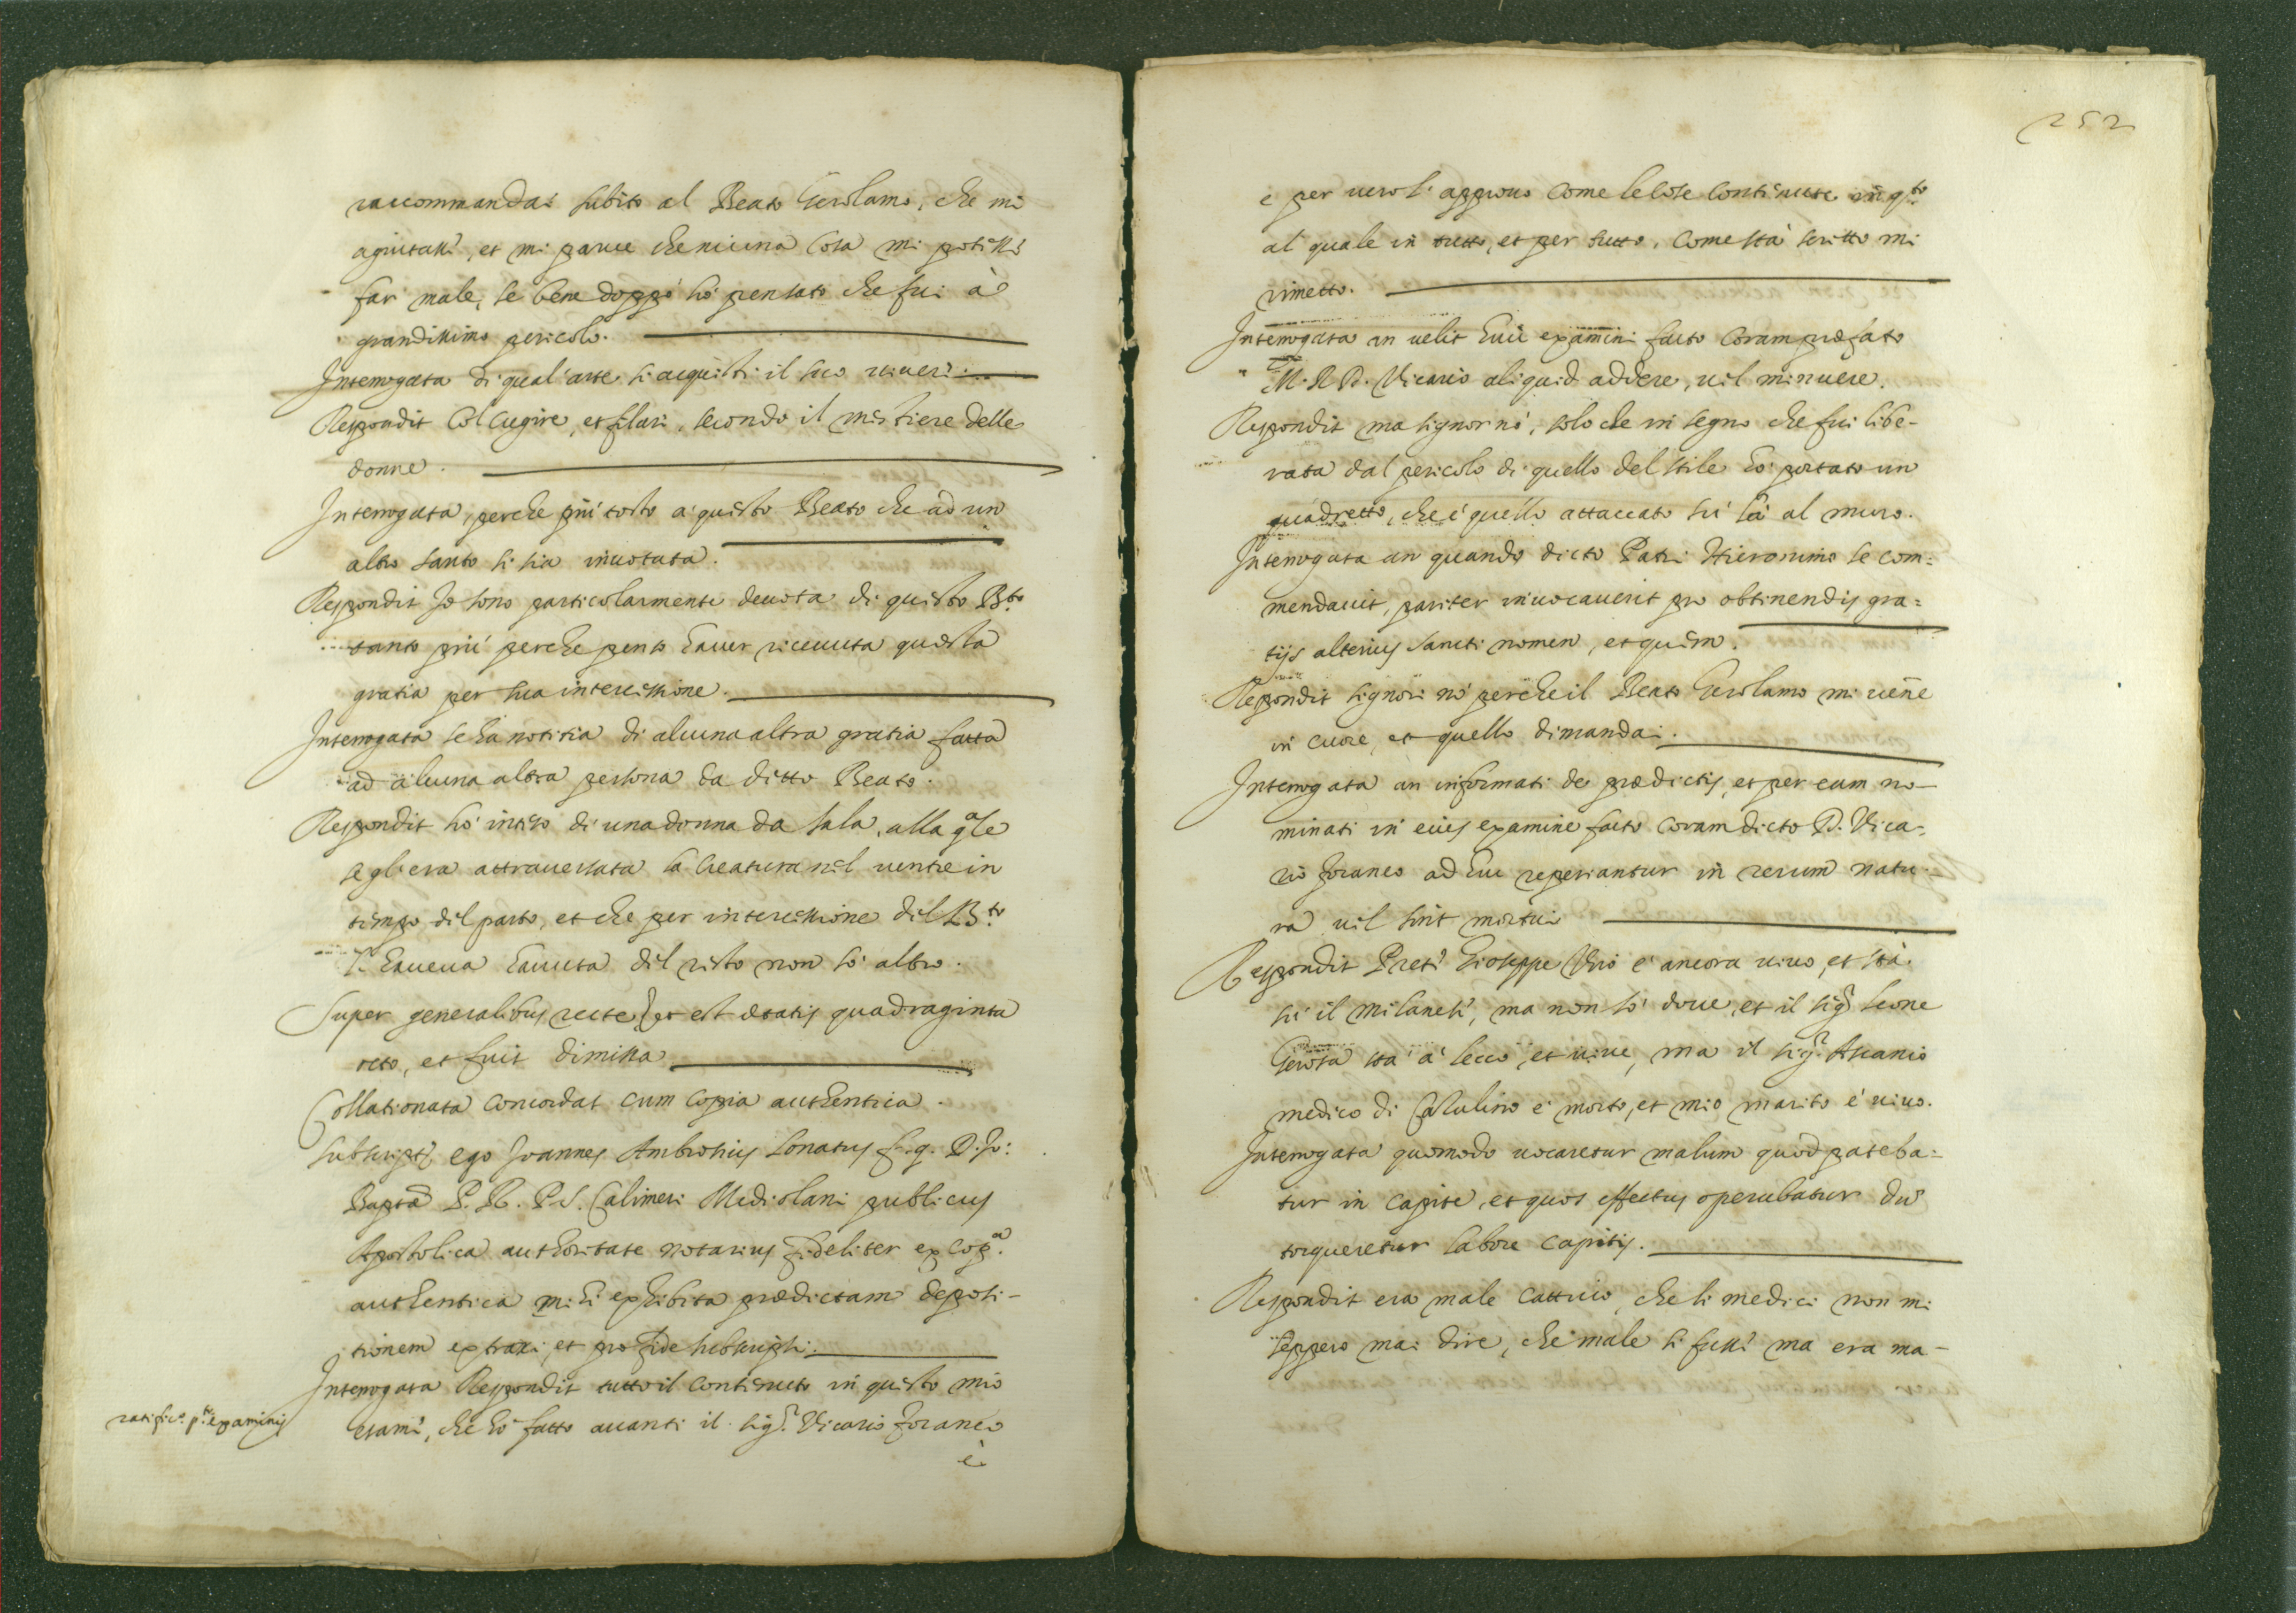 raccommandai subito al Beato Gerolamo, che mi
agiutassi, et mi parve che niuna cosa mi potessi
far male, se bene doppo hò pensato che fui à
grandissimo pericolo.
Interrogata di qual'arte si acquisti il suo viveri.
Respondit Col cugire, et filari, secondo il mestiere delle
donne.
Interrogata, perche più tosto a questo Beato che ad un
altro santo si sia invotata.
Respondit Io sono particolarmente devota di questo B.to
tanto più perche penso haver ricevuta questa
gratia per sua intercessione.
Interrogata se ha notitia di alcuna altra gratia fatta
ad alcuna altra persona da ditto Beato.
Respondit hò inteso di una donna da Sala, alla qale
se gli era attraversata la creatura nel ventre in
tempo del parto, et che per intercessione del B.to
l'haveva havuta del resto non sò altro.
Super generalibus recte, et est ætatis quadraginta
octo, et fuit dimissa
Collationata concordat cum copia authentica.
subscript. ego Joannes Ambrosius Lonatus f. q. D. Jo:
Bapta P. R. P. S. Calimeri Mediolani publicus
Apostolica authoritate notarius fideliter ex cop.a
authentica mihi exhibita prædictam deposi-
tionem extraxi, et pro fide subscripsi.
Interrogata Respondit tutto il contenuto in questo mio
ratific.o p.ti examinis
esami, che hò fatto avanti il sig.r Vicario foraneo
è
252
e per vero l'approvo come le cose contenute in q.to
al quale in tutto, et per tutto, come stà scritto mi
rimetto.
Interrogata an velit huic examini facto coram præfato
M. R. D. Vicario aliquid addere, vel minuere.
Respondit ma signor nò, solo che in segno che fui libe-
rata dal pericolo di quello del stile hò portato un
quadretto, che è quello attaccato sù là al muro.
Interrogata an quando dicto Patri Hieronimo se com-
mendavit, pariter invocaverit pro obtinendis gra-
tijs alterius sancti nomen, et quem.
Respondit signori nò perche il Beato Gerolamo mi venne
in cuore, et quello dimandai.
Interrogata an informati de prædictis, et per eum no-
minati in eius examine facto coram dicto D. Vica-
rio foraneo adhuc reperiantur in rerum natu-
ra vel sint mortui
Respondit Preti Gioseppe Vrio è ancora vivo, et stà
sù il milanesi, ma non sò dove, et il sig.r Leone
Gerosa stà à Lecco, et vive, ma il sig.r Ascanio
medico di Calulino è morto, et mio marito è vivo.
Interrogata quomodo vocaretur malum quod pateba-
tur in capite, et quos effectus operabatur dum
torqueretur labore capitis.
Respondit era male cattivo, che li medici non mi
seppero mai dire, che male si fussi ma era ma-